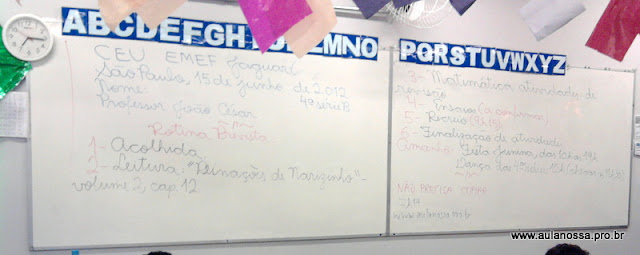 ABCDEFGHI LMNO
PQRSTUVWXYZ
CEU EMEF Jaguaré
São Paulo, 15 de junho de 2.012
Nome: 4ª série B
Professor João César
Rotina Prevista
1- Acolhida
2- Leitura: "Reinações de Narizinho" -
volume 2, cap. 12
3- Matemática atividades de
revisão
4- Ensaio (a confirmar)
5- Recreio
6- Finalização da atividade
Amanhã: Festa Junina, das
Dança
NÃO
www.aulanossa.pro.br
www.aulanossa.pro.br